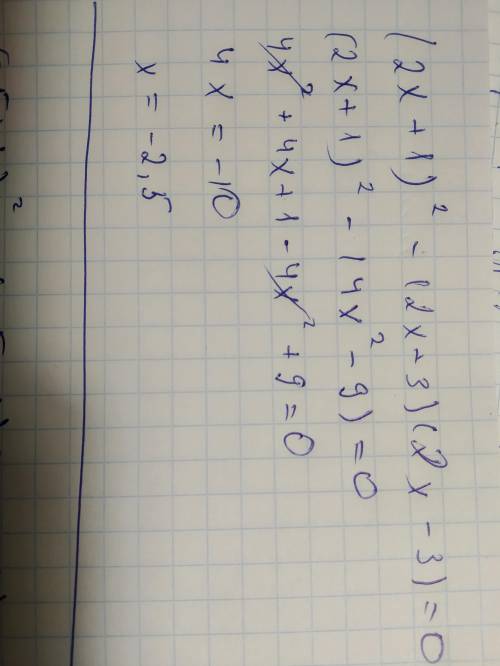 (2x+1)² - (2x+3)(2x-3)=0
(2x+1)² - (4x²-9)=0
4x² + 4x+1 - 4x² + 9=0
4x = -10
x = -2,5